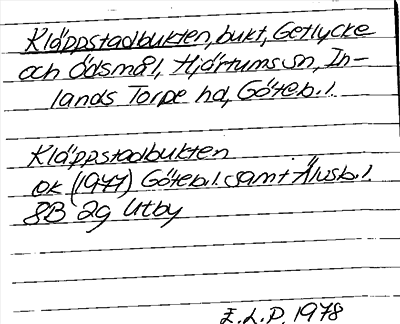 Kläppstadbukten, bukt, Getlycke
och Ödsmål, Hjärtums sn, In-
lands Torpe hd, Göteb. l.
Kläppstadbukten
ok (1977) Göteb. l. samt Älvsb. l.
8B 2g Utby
E. L. P. 1978